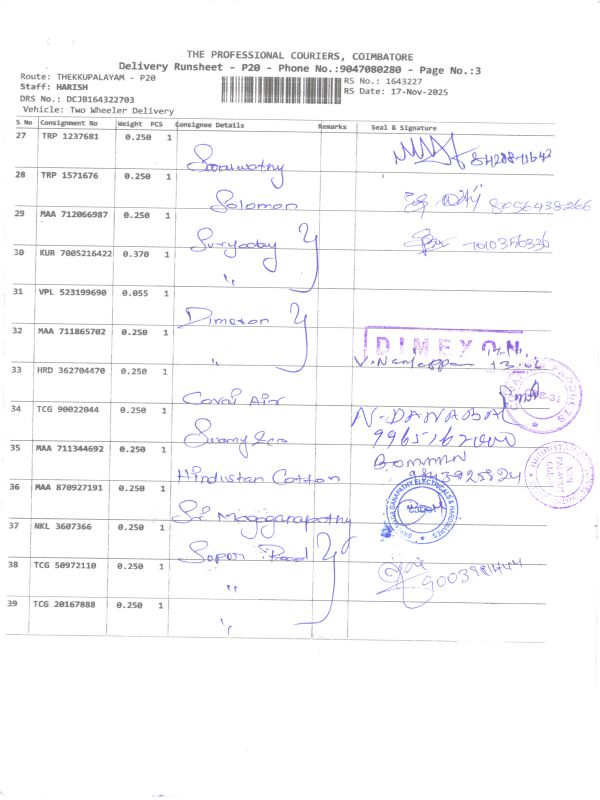 THE PROFESSIONAL COURIERS, COIMBATORE
Delivery Runsheet - P20 - Phone No.:9047080280 - Page No.:3
Route: THEKKUPALAYAM - P20
RS No.: 1643227
Staff: HARISH
RS Date: 17-Nov-2025
DRS No.: DCJB164322703
Vehicle: Two Wheeler Delivery
S No Consignment No Weight PCS Consignee Details Remarks Seal & Signature
27 TRP 1237681 0.250 1
28 TRP 1571676 0.250 1 Solomon 8056438266
29 MAA 712066987 0.250 1 7010356336
30 KUR 7005216422 0.370 1 "
31 VPL 523199690 0.055 1 Dimexon
32 MAA 711865702 0.250 1 " DIMEXON
33 HRD 362704470 0.250 1 Covai Air
34 TCG 90022044 0.250 1 N. DANABAL
35 MAA 711344692 0.250 1 Hindustan Cotton
36 MAA 870927191 0.250 1 Sri Magaganapathy GANAPATHY ELECTRICALS & HARDWARES
37 NKL 3607366 0.250 1
38 TCG 50972110 0.250 1 "
39 TCG 20167888 0.250 1 "